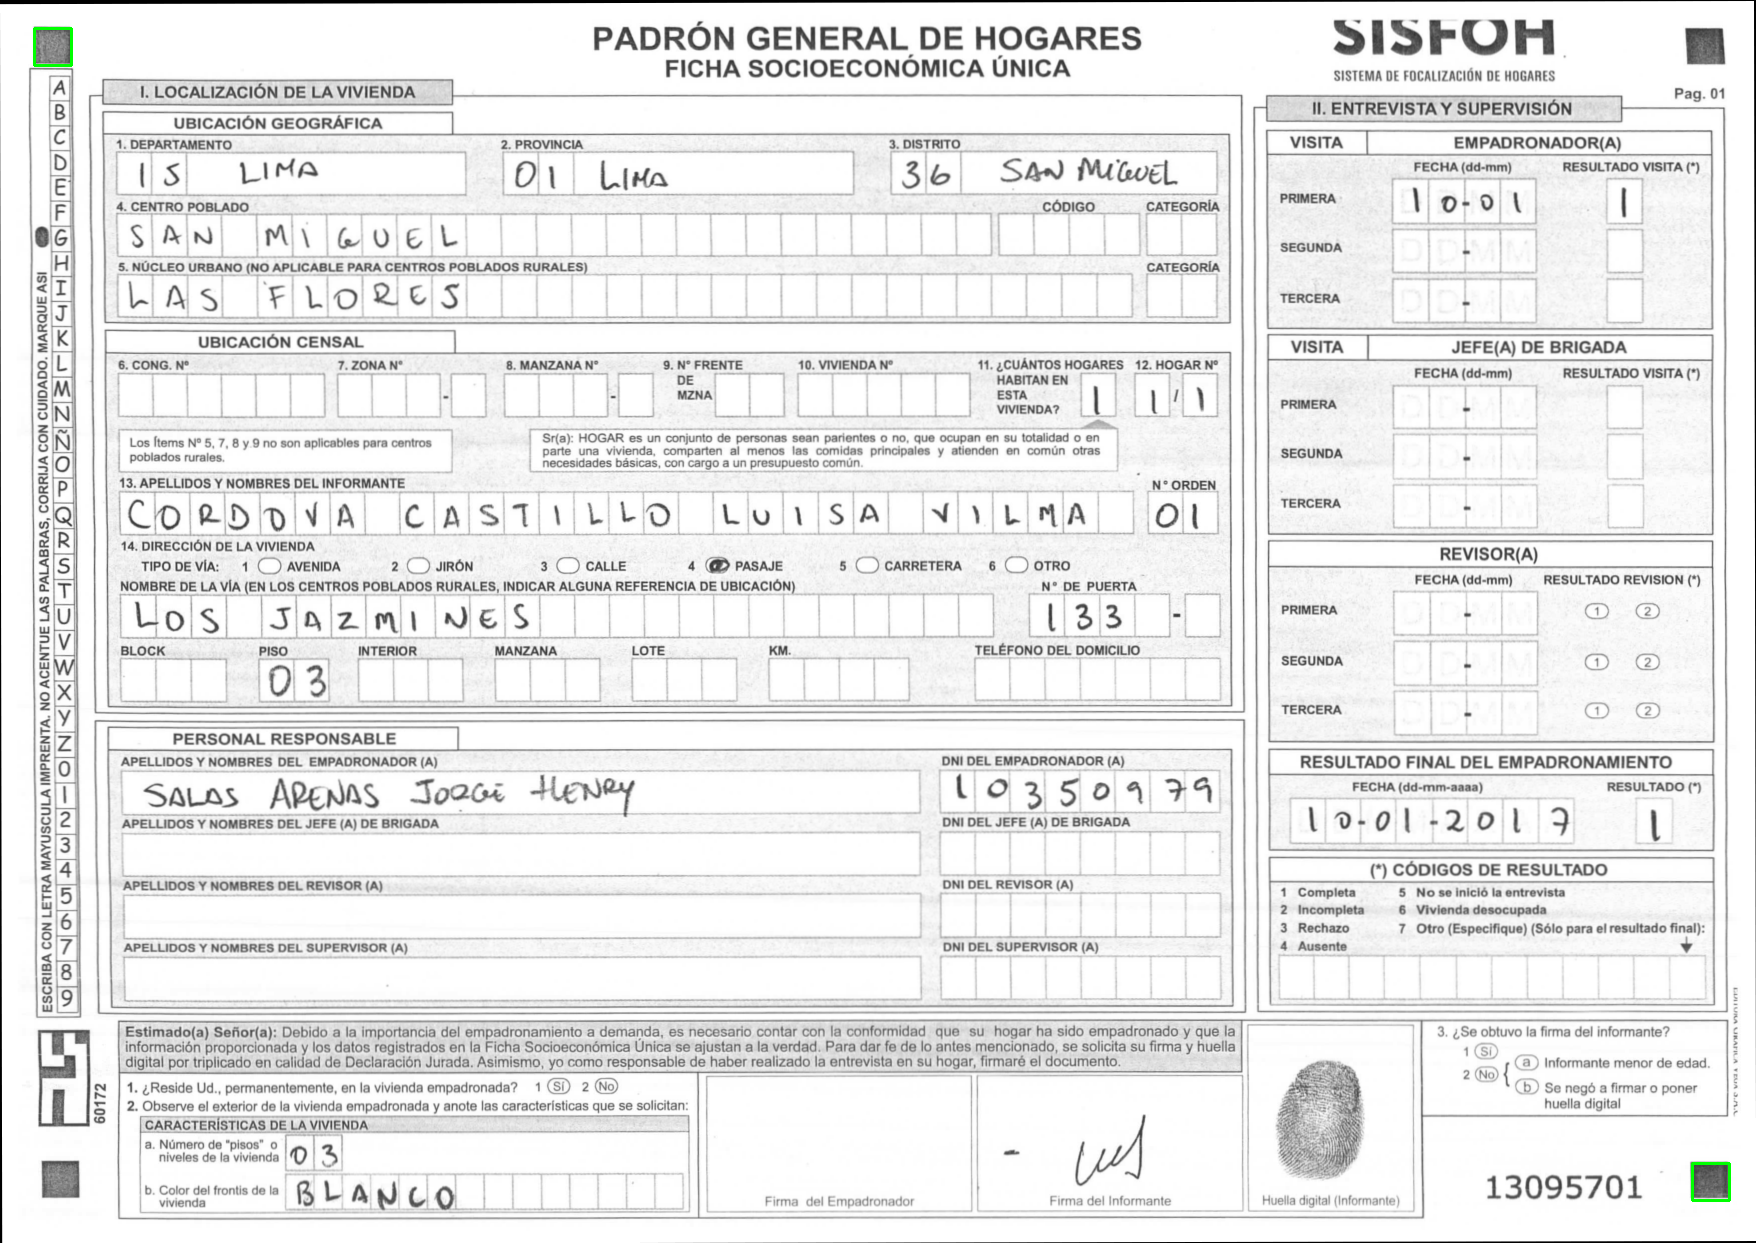 PADRÓN GENERAL DE HOGARES
FICHA SOCIOECONÓMICA ÚNICA
SISFOH
SISTEMA DE FOCALIZACIÓN DE HOGARES
Pag. 01
ESCRIBA CON LETRA MAYUSCULA IMPRENTA. NO ACENTUE LAS PALABRAS, CORRIJA CON CUIDADO. MARQUE ASI
A B C D E F G H I J K L M N Ñ O P Q R S T U V W X Y Z 0 1 2 3 4 5 6 7 8 9
I. LOCALIZACIÓN DE LA VIVIENDA
UBICACIÓN GEOGRÁFICA
1. DEPARTAMENTO 2. PROVINCIA 3. DISTRITO
15 LIMA 01 LIMA 36 SAN MIGUEL
4. CENTRO POBLADO CÓDIGO CATEGORÍA
SAN MIGUEL
5. NÚCLEO URBANO (NO APLICABLE PARA CENTROS POBLADOS RURALES) CATEGORÍA
LAS FLORES
UBICACIÓN CENSAL
6. CONG. N° 7. ZONA N° 8. MANZANA N° 9. N° FRENTE DE MZNA 10. VIVIENDA N° 11. ¿CUÁNTOS HOGARES HABITAN EN ESTA VIVIENDA? 12. HOGAR N°
- - 1 1 / 1
Los Ítems Nº 5, 7, 8 y 9 no son aplicables para centros
poblados rurales.
Sr(a): HOGAR es un conjunto de personas sean parientes o no, que ocupan en su totalidad o en
parte una vivienda, comparten al menos las comidas principales y atienden en común otras
necesidades básicas, con cargo a un presupuesto común.
13. APELLIDOS Y NOMBRES DEL INFORMANTE N° ORDEN
CORDOVA CASTILLO LUISA VILMA 01
14. DIRECCIÓN DE LA VIVIENDA
TIPO DE VÍA: 1 AVENIDA 2 JIRÓN 3 CALLE 4 PASAJE 5 CARRETERA 6 OTRO
NOMBRE DE LA VÍA (EN LOS CENTROS POBLADOS RURALES, INDICAR ALGUNA REFERENCIA DE UBICACIÓN) N° DE PUERTA
LOS JAZMINES 133 -
BLOCK PISO INTERIOR MANZANA LOTE KM. TELÉFONO DEL DOMICILIO
03
PERSONAL RESPONSABLE
APELLIDOS Y NOMBRES DEL EMPADRONADOR (A) DNI DEL EMPADRONADOR (A)
SALAS ARENAS JORGE HENRY 10350979
APELLIDOS Y NOMBRES DEL JEFE (A) DE BRIGADA DNI DEL JEFE (A) DE BRIGADA
APELLIDOS Y NOMBRES DEL REVISOR (A) DNI DEL REVISOR (A)
APELLIDOS Y NOMBRES DEL SUPERVISOR (A) DNI DEL SUPERVISOR (A)
II. ENTREVISTA Y SUPERVISIÓN
VISITA EMPADRONADOR(A)
FECHA (dd-mm) RESULTADO VISITA (*)
PRIMERA 10-01 1
SEGUNDA DD-MM
TERCERA DD-MM
VISITA JEFE(A) DE BRIGADA
FECHA (dd-mm) RESULTADO VISITA (*)
PRIMERA DD-MM
SEGUNDA DD-MM
TERCERA DD-MM
REVISOR(A)
FECHA (dd-mm) RESULTADO REVISION (*)
PRIMERA DD-MM 1 2
SEGUNDA DD-MM 1 2
TERCERA DD-MM 1 2
RESULTADO FINAL DEL EMPADRONAMIENTO
FECHA (dd-mm-aaaa) RESULTADO (*)
10-01-2017 1
(*) CÓDIGOS DE RESULTADO
1 Completa 5 No se inició la entrevista
2 Incompleta 6 Vivienda desocupada
3 Rechazo 7 Otro (Especifique) (Sólo para el resultado final):
4 Ausente
60172
Estimado(a) Señor(a): Debido a la importancia del empadronamiento a demanda, es necesario contar con la conformidad que su hogar ha sido empadronado y que la
información proporcionada y los datos registrados en la Ficha Socioeconómica Única se ajustan a la verdad. Para dar fe de lo antes mencionado, se solicita su firma y huella
digital por triplicado en calidad de Declaración Jurada. Asimismo, yo como responsable de haber realizado la entrevista en su hogar, firmaré el documento.
1. ¿Reside Ud., permanentemente, en la vivienda empadronada? 1 Sí 2 No
2. Observe el exterior de la vivienda empadronada y anote las características que se solicitan:
CARACTERÍSTICAS DE LA VIVIENDA
a. Número de "pisos" o niveles de la vivienda 03
b. Color del frontis de la vivienda BLANCO
Firma del Empadronador
Firma del Informante
Huella digital (Informante)
3. ¿Se obtuvo la firma del informante?
1 Sí
2 No { a Informante menor de edad.
b Se negó a firmar o poner
huella digital
13095701